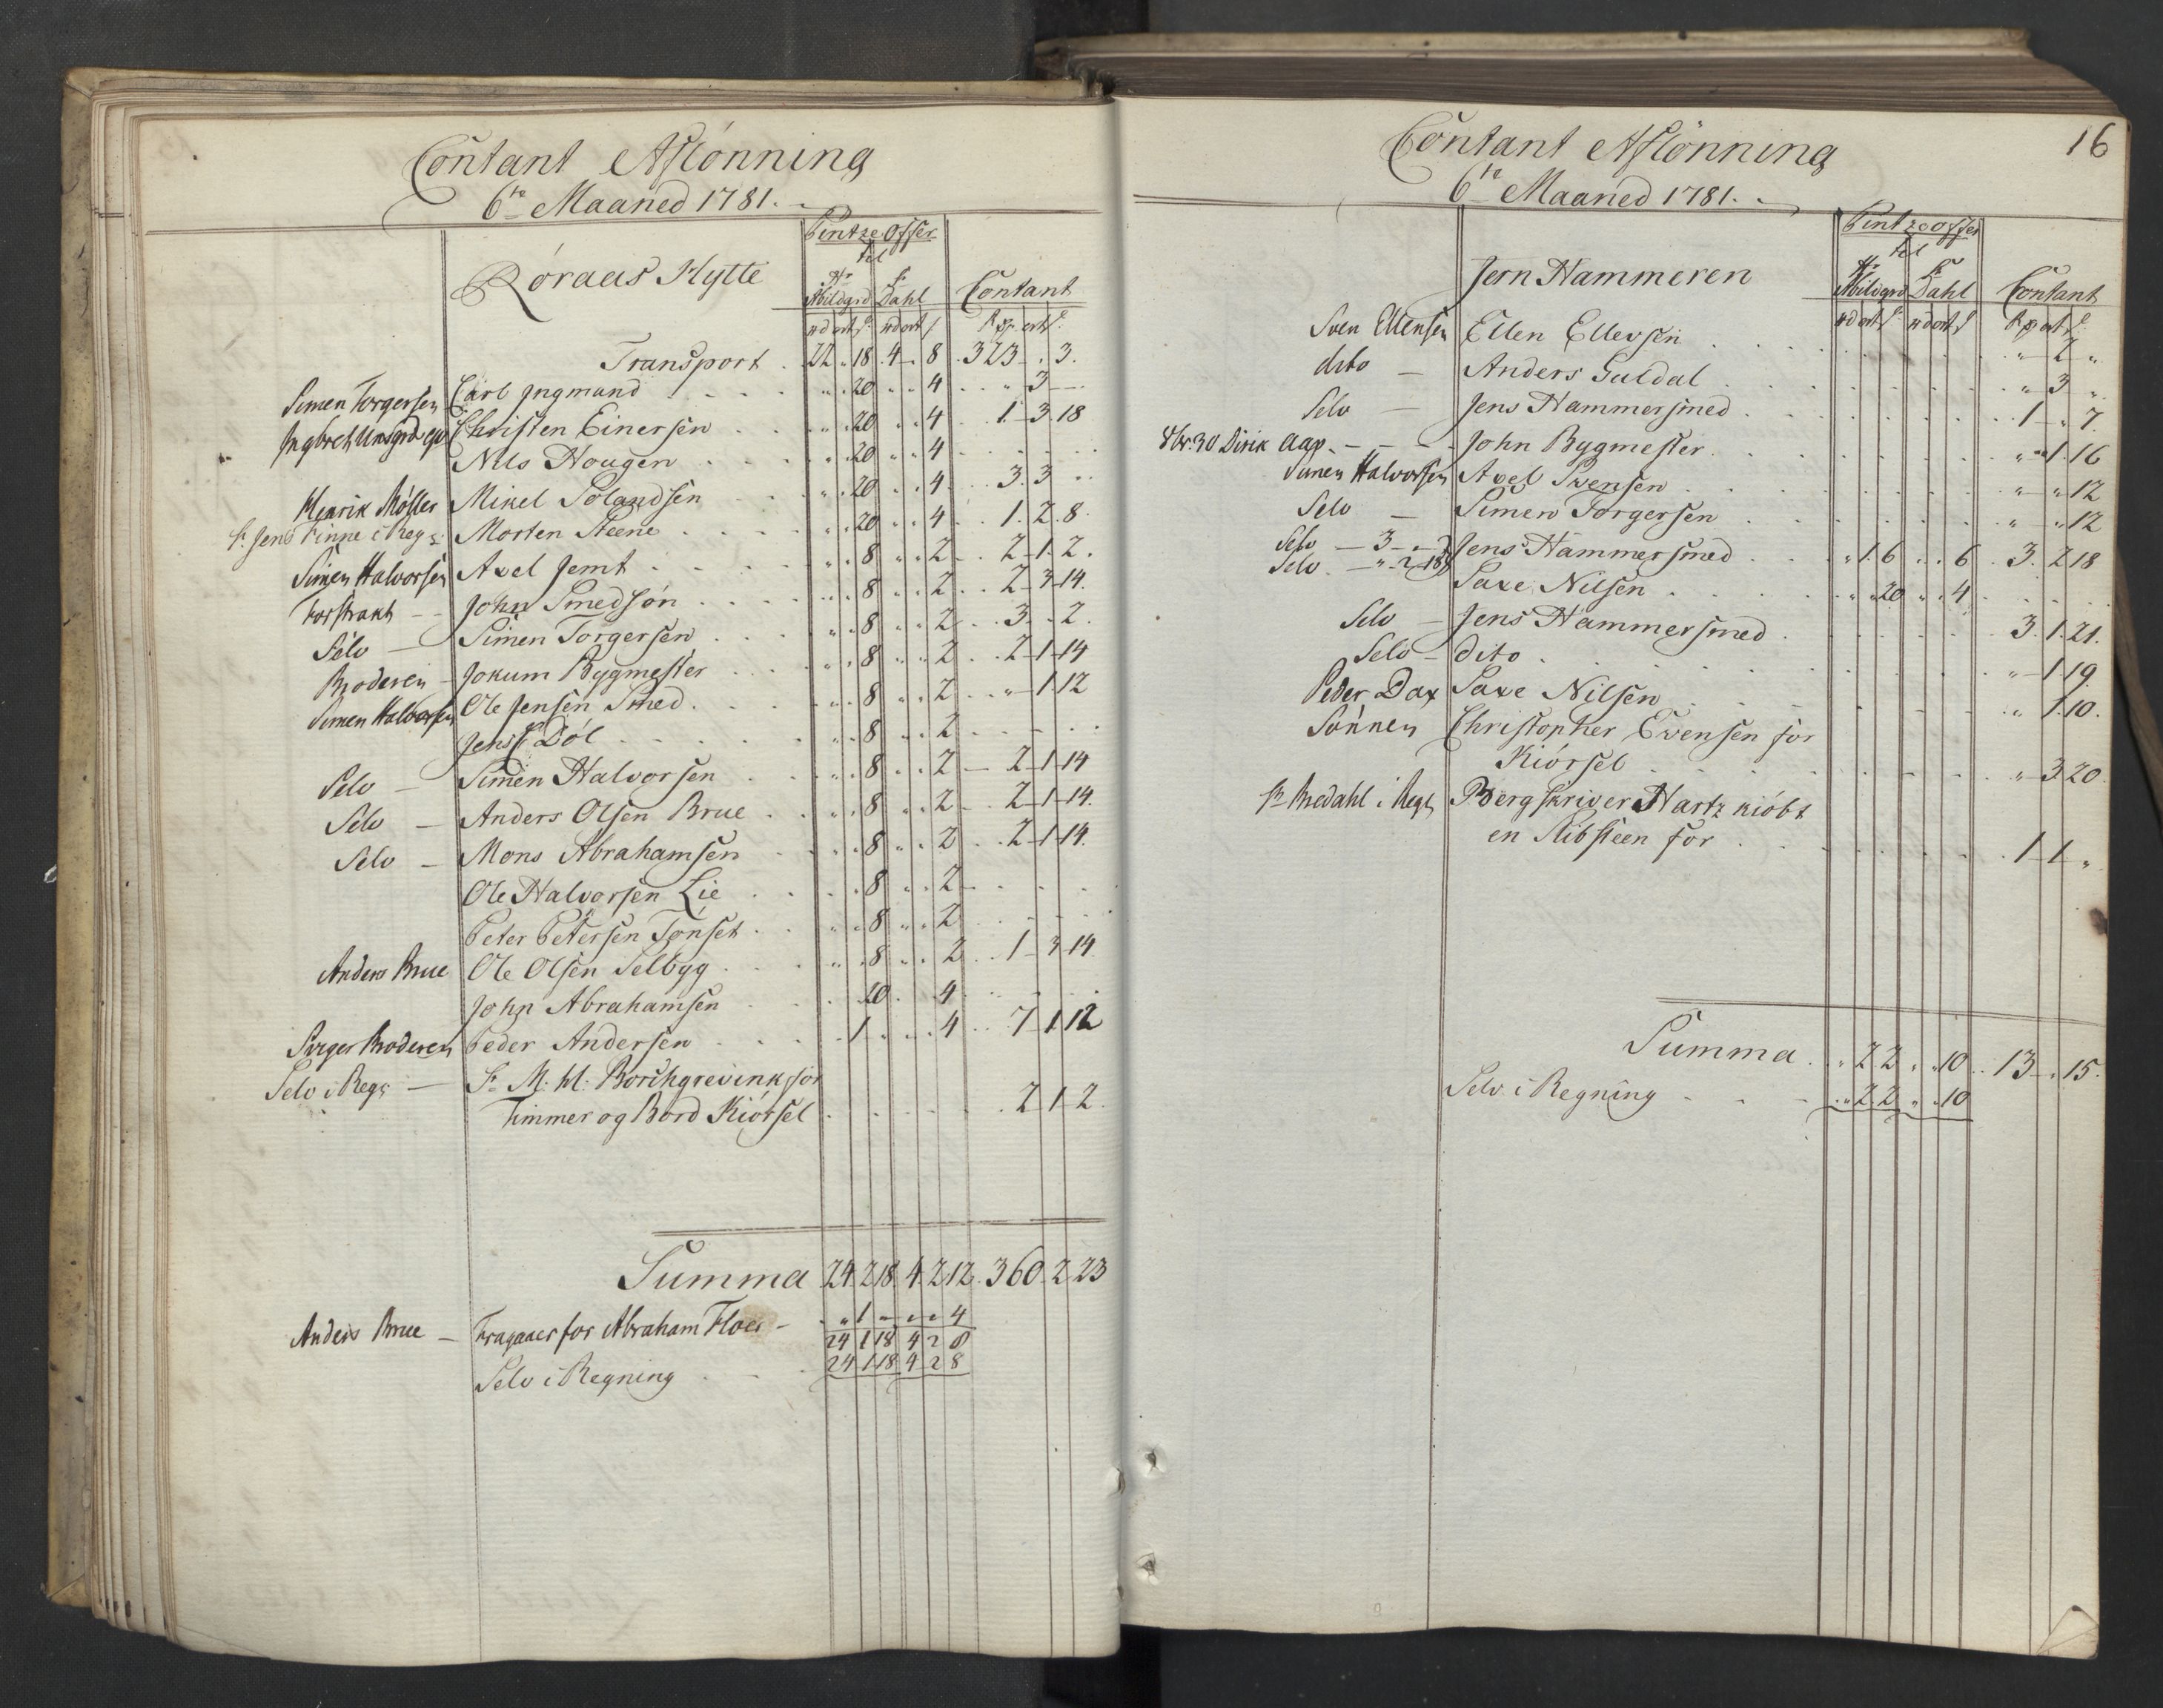 Contant Aflønning
6te Maaned 1781.
Røraas Hytte
Pintze Offer
til
Hr Abildgrd
Hr Dahl
Contant
Transport . 22 . 18 . 4 . 8 . 323 . . 3.
Simen Torgersen Carl Jngmand . . . . " . 20 . . 4 . . " 3 —
Christen Einersen . . . . 20 . . 4 . . 1. 3. 18
Nils Hougen . . . . 20 . . 4 . . . .
Henrik Møller Mikel Polandsen . . 20 . . 4 . . 3. 3 . .
Hr Jens Finne i Reg: Morten Steene . . . 20 . . 4 . . 1. 2. 8.
Simen Halvorsen Axel Jemt . . . . 8 . . 2 . . 2 - 1. 2.
Forstrakt — John Smedsøn . . . . 8 . . 2 . . 2 - 3 - 14.
Selv — Simen Torgersen . . . . 8 . . 2 . . 3. . 2.
Broderen — Jokum Bygmester . . . 8 . . 2 . . 2 - 1 - 14
Simen Halvorsen Ole Jensen Smed . . . . 8 . . 2 . . " - 1 12
Jens Døl . . . . 8 . . 2 . . . .
Selv — Simen Halvorsen . . . 8 . . 2 — 2 - 1 - 14
Selv — Anders Olsen Brue . . . 8 . . 2 . . 2 - 1 - 14.
Selv — Mons Abrahamsen . . . 8 . . 2 . . 2 - 1 - 14.
Ole Halvorsen Lie . . . 8 . . 2 . . . .
Peter Petersen Tønset . . . 8 . . 2 . . . .
Anders Brue Ole Olsen Selbyg . . . 8 . . 2 . . 1 - 3 - 14.
John Abrahamsen . . . 20 . 4 . . . .
Birger Broderen Peder Andersen . . . 1 . . . 4 . . 7 1 12
Selv i Reg: — Hr M: hl: Borchgrevink for
Timmer og Bord Kiørsel . . . . . . 2 1 2.
Summa 24 2 18 4 2 12 . 360 . 2 23
Anders Brue — Fragaaer for Abraham Floer — . " 1 — " " 4
24 1 18 4 2 8
Selv i Regning . . . 24 1 18 4 2 8
16
Contant Aflønning
6te Maaned 1781.
Jern Hammeren
Pintze Offer
til
Hr Abildgrd
Hr Dahl
Contant
Sven Ellensen Ellen Ellevsen . . . . . " 2 "
dito — Anders Guldal . . . . . " 3 "
Selv — Jens Hammersmed . . . . . 1 - " 7.
8br: 30 Dirik Aap. — — John Bygmester . . . . . " - 1. 16
Simen Halvorsen Axel Swensen . . . . . " - " 12
Selv — Simen Torgersen . . . . . " - " 12
Selv — 3 - " -
Selv — " 2 - 18 Jens Hammersmed . . " 1 6 . . 6 . 3. 2 18
Saxe Nilsen . . . " 20 " . 4 . . . .
Selv — Jens Hammersmed . . . . . 3. 1. 21.
Selv — dito . . . . . " - 1 19.
Peder Dax Saxe Nilsen . . . . . " 1. 10.
Sønnen Christopher Evensen for
Kiørsel . . . . . " - 3 20.
Hr Bredahl i Regs Bergskriver Hartz kiøbt
en Slibsteen for . . . . . 1 - 1 "
Summa . . " 2 2 " . 10 . . 13 - " 15.
Selv i Regning . . . " 2 2 " . 10